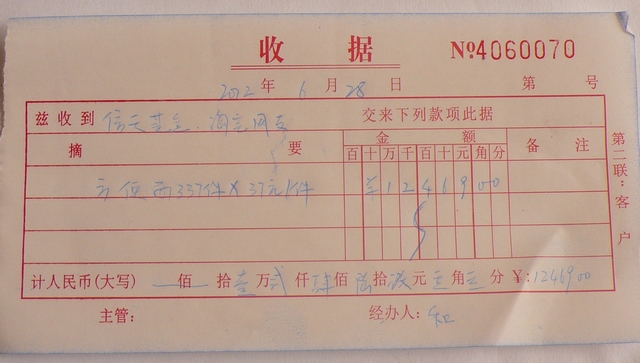 收 据 №4060070
2012年6月28日 第 号
兹收到 信天基金、淘宝网友 交来下列款项此据
摘 要 金 额 备 注
百十万千百十元角分
方便面337件×37元/件 ¥1246900
计人民币(大写) 佰 拾壹万贰仟肆佰陆拾玖元零角零分 ¥:12469.00
主管: 经办人:
第二联:客户